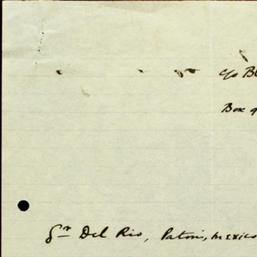 c/o B
Box
Gr Del Rio, Patoni, Mexico